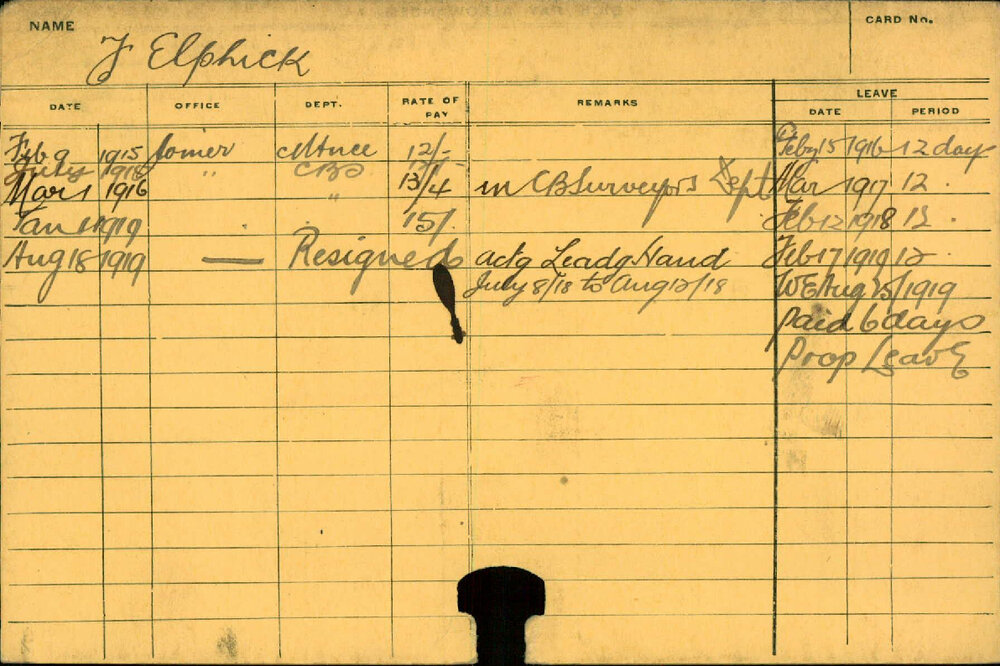 NAME
CARD No.
F Elphick
DATE OFFICE DEPT. RATE OF PAY REMARKS LEAVE
DATE PERIOD
Feb 9 1915 Joiner Mtnce 12/- Feby 15 1916 12 days
July 1915 " CBD
Mar 1 1916 " 13/4 in CB Surveyors Dept Mar 1917 12 .
Jan 1 1919 15/. Feb 12 1918 12 .
Aug 18 1919 — Resigned actg Leadg Hand Feb 17 1919 12
July 8/18 to Aug 12/18 WE Aug 25/1919
paid 6 days
Prop Leave